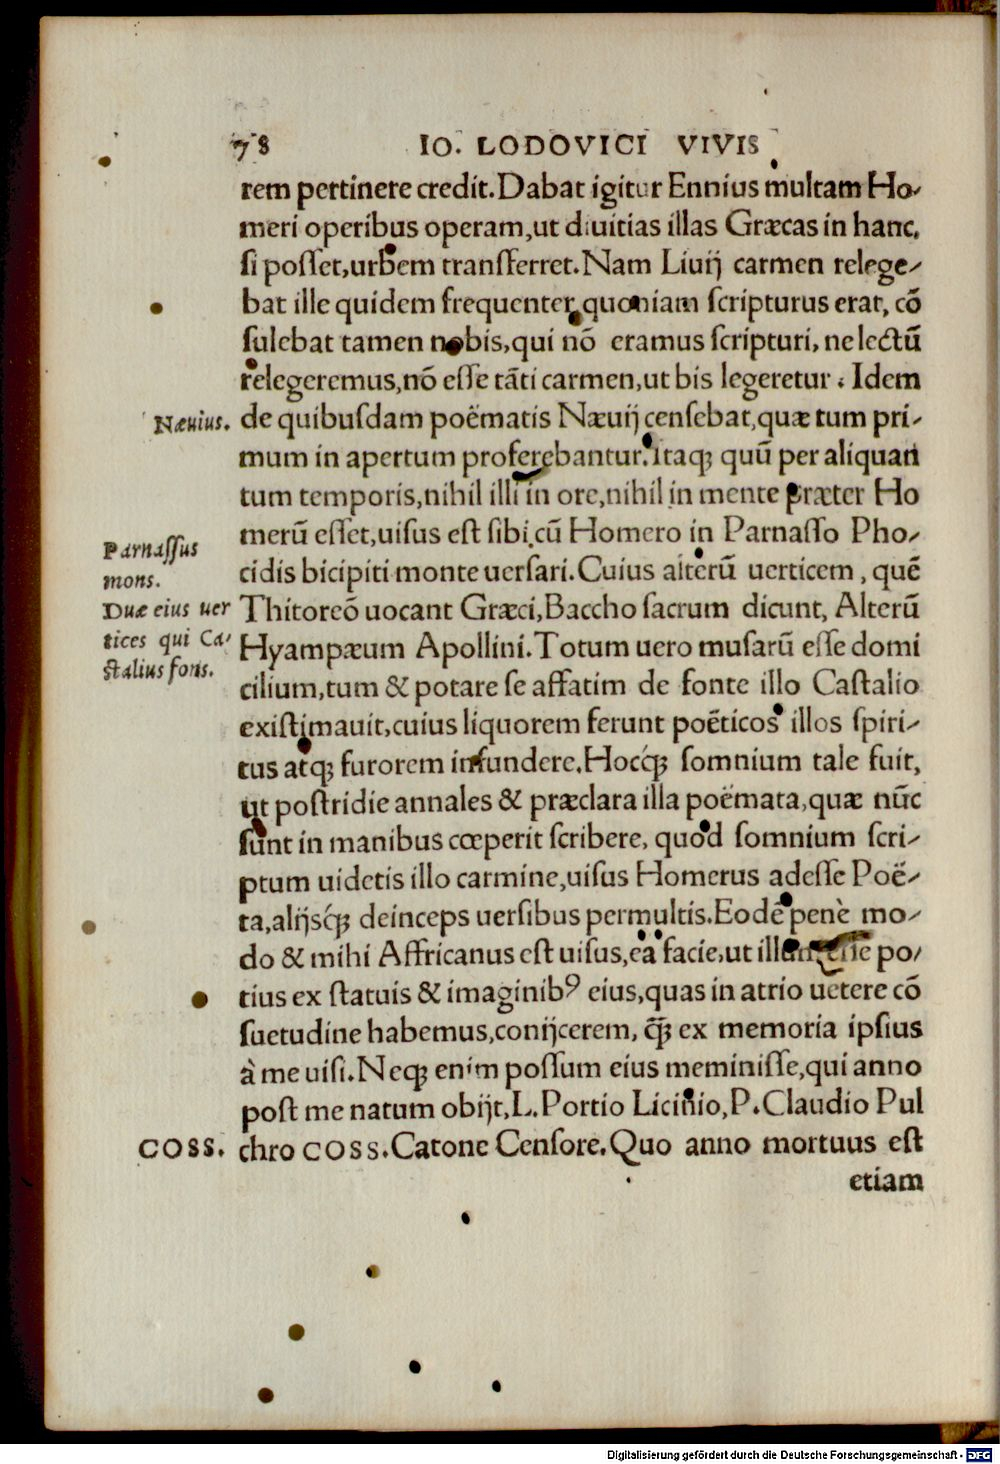 78 IO. LODOVICI VIVIS
rem pertinere credit. Dabat igitur Ennius multam Ho-
meri operibus operam, ut diuitias illas Græcas in hanc,
si posset, urbem transferret. Nam Liuij carmen relege-
bat ille quidem frequenter, quoniam scripturus erat, cõ
sulebat tamen nobis, qui nõ eramus scripturi, ne lectũ
relegeremus, nõ esse tãti carmen, ut bis legeretur. Idem
Næuius.
de quibusdam poëmatis Næuij censebat, quæ tum pri-
mum in apertum proferebantur. Itaq; quũ per aliquan
tum temporis, nihil illi in ore, nihil in mente præter Ho
merũ esset, uisus est sibi cũ Homero in Parnasso Pho-
Parnassus
mons.
cidis bicipiti monte uersari. Cuius alterũ uerticem, quẽ
Duæ eius uer
tices qui Ca-
stalius fons.
Thitoreõ uocant Græci, Baccho sacrum dicunt, Alterũ
Hyampæum Apollini. Totum uero musarũ esse domi
cilium, tum & potare se affatim de fonte illo Castalio
existimauit, cuius liquorem ferunt poëticos illos spiri-
tus atq; furorem infundere. Hocq́; somnium tale fuit,
ut postridie annales & præclara illa poëmata, quæ nũc
sunt in manibus cœperit scribere, quod somnium scri-
ptum uidetis illo carmine, uisus Homerus adesse Poë-
ta, alijsq́; deinceps uersibus permultis. Eodẽ penè mo-
do & mihi Affricanus est uisus, ea facie, ut illam esse po-
tius ex statuis & imaginibꝰ eius, quas in atrio uetere cõ
suetudine habemus, conijcerem, q̃; ex memoria ipsius
à me uisi. Neq; enim possum eius meminisse, qui anno
post me natum obijt, L. Portio Licinio, P. Claudio Pul
COSS.
chro COSS. Catone Censore. Quo anno mortuus est
etiam
Digitalisierung gefördert durch die Deutsche Forschungsgemeinschaft - DFG